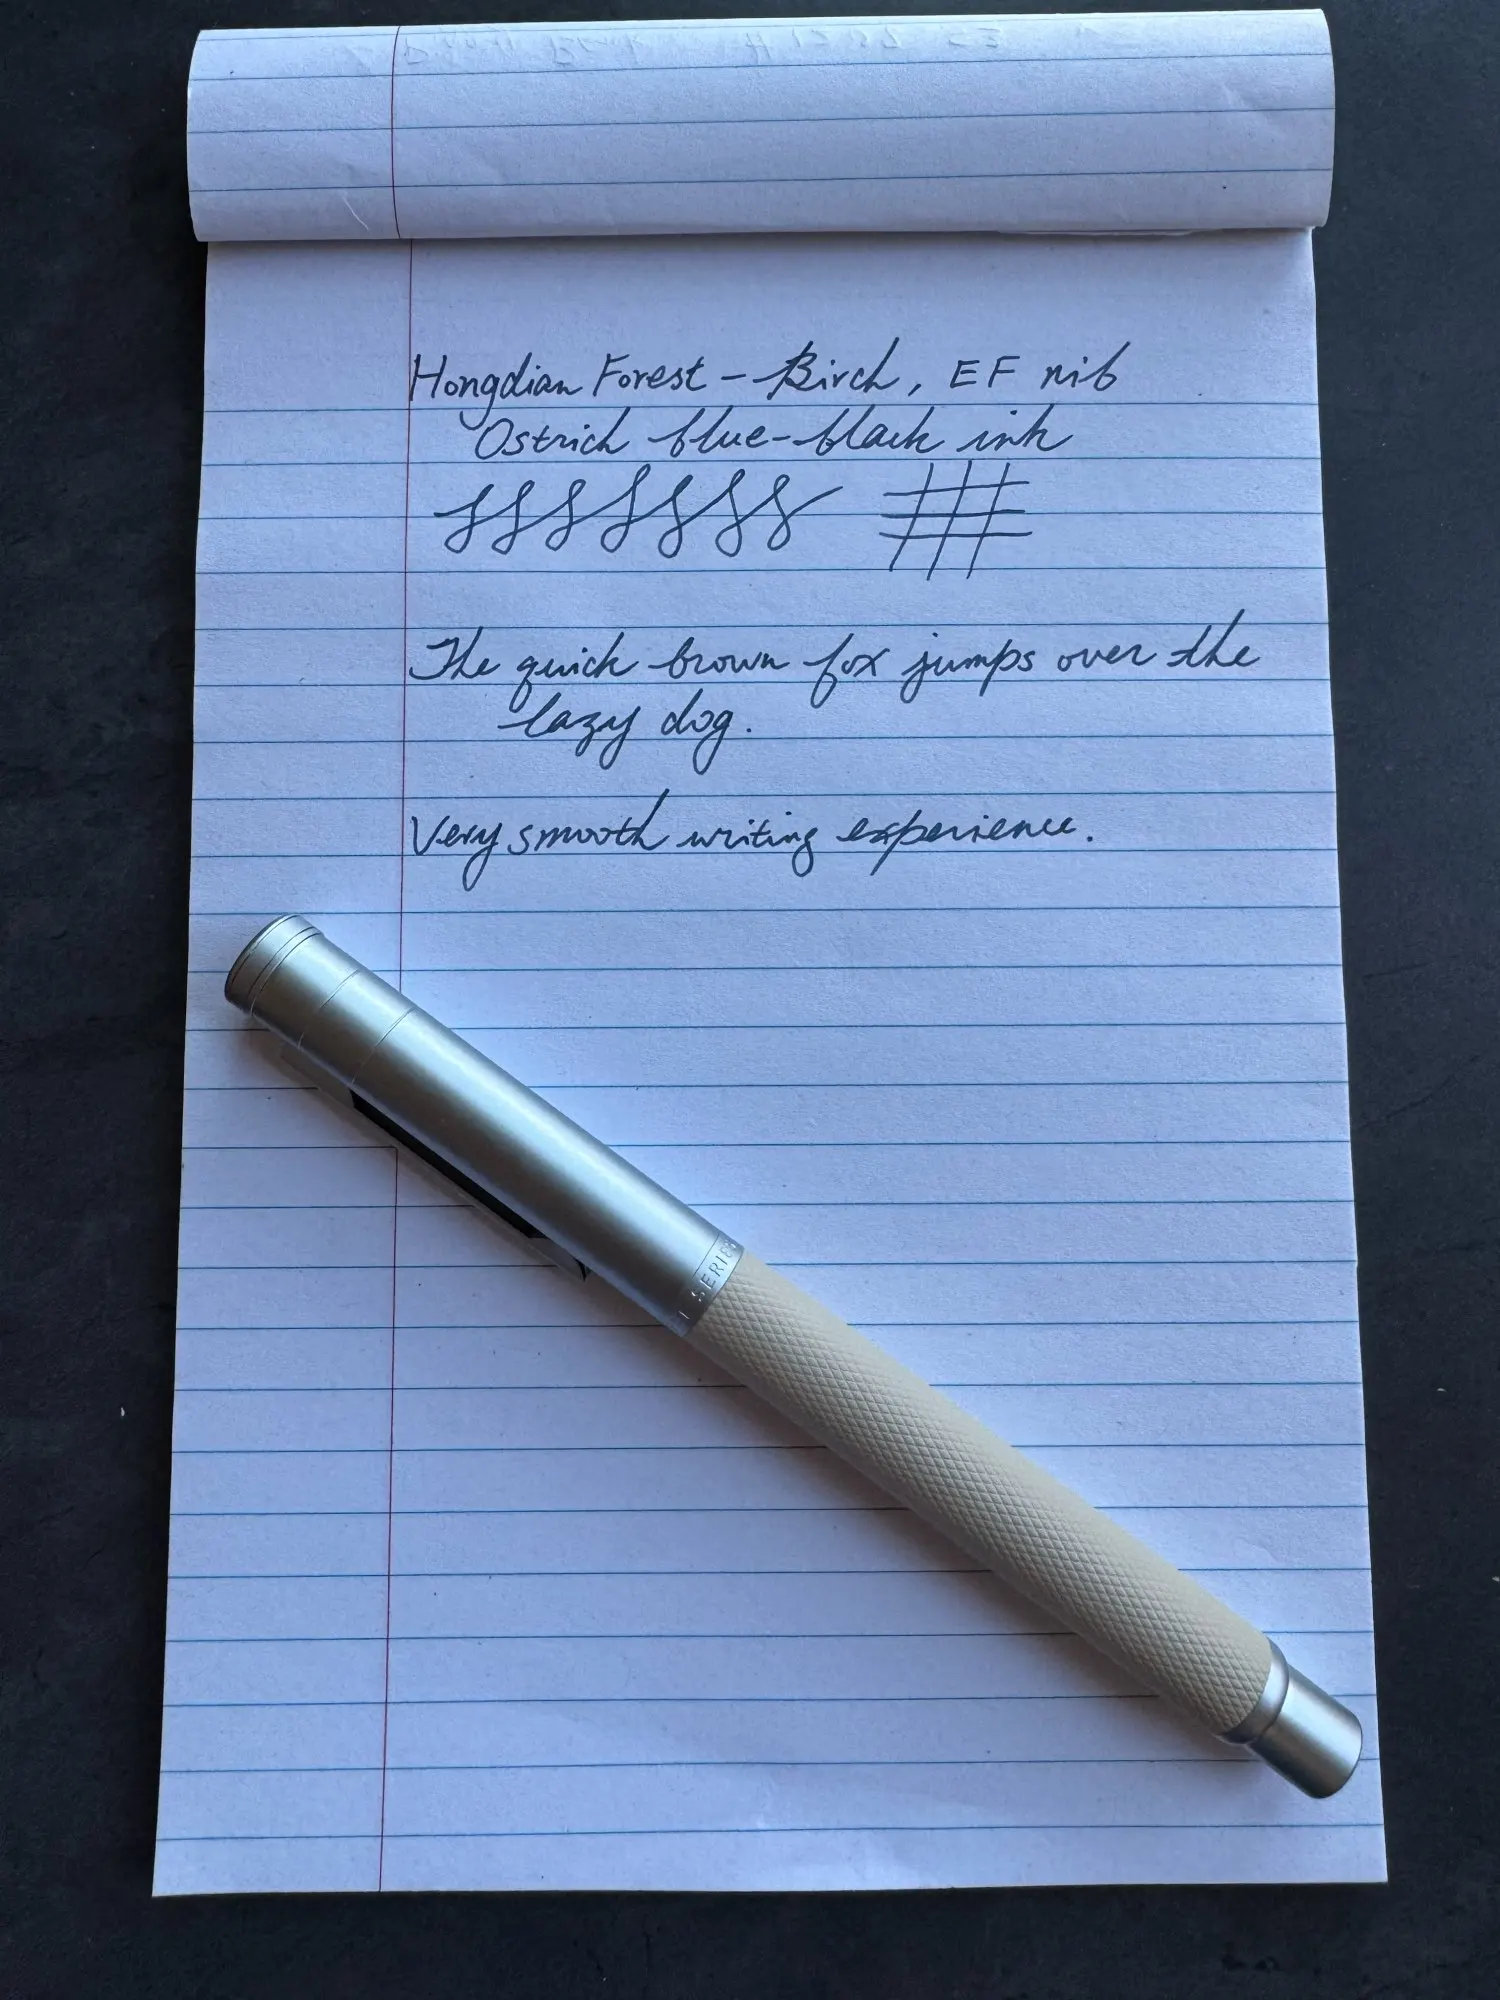 Hongdian Forest - Birch, EF nib
Ostrich blue-black ink
The quick brown fox jumps over the
lazy dog.
Very smooth writing experience.
SERIES